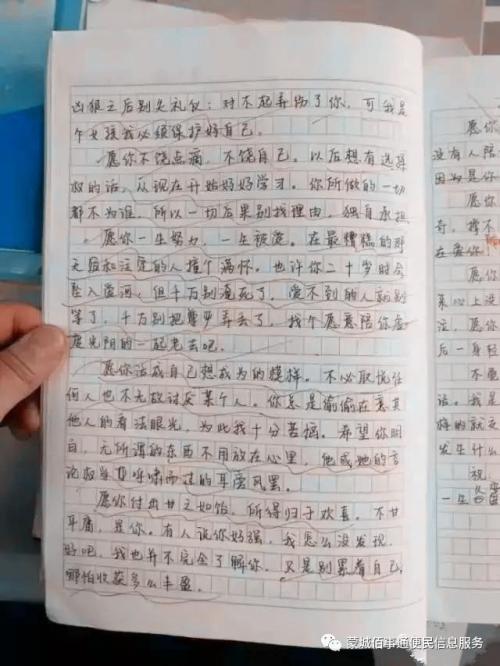 凶狠之后别失礼仪：对不起弄伤了你，可我是
个女孩我必须保护好自己。
愿你不饶点痛，不饶自己。以后想有选择
权的话，从现在开始好好学习。你所做的一切
都不为谁，所以一切后果别找理由，独自承担
愿你一生努力，一生被爱。在最糟糕的那
天后和注定的人撞个满怀。也许你二十岁时会
坠入爱河，但千万别淹死了，爱不到的人就别
等了，千万别把尊严弄丢了，找个愿意陪你虚
度光阴的一起老去吧。
愿你活成自己想成为的模样。不必取悦任
何人也不无故讨厌某个人。你总是偷偷在意其
他人的看法眼光，为此我十分苦恼。希望你明
白，无所谓的东西不用放在心里，他或她的言
论权当从呼啸而过的耳旁风罢。
愿你付出甘之如饴，所得归于欢喜。不甘
平庸，是你。有人说你好强，我怎么没发现
好吧，我也并不完全了解你。只是别累着自己，
哪怕收获多么丰盈。
愿你
没有人陪
因为是你
愿你
奇，撑不
在爱你
愿你
来心上没
注，愿你
后一身轻
不要
话。我是
好的就交
发生什么
祝
一生
蒙城佰事通便民信息服务